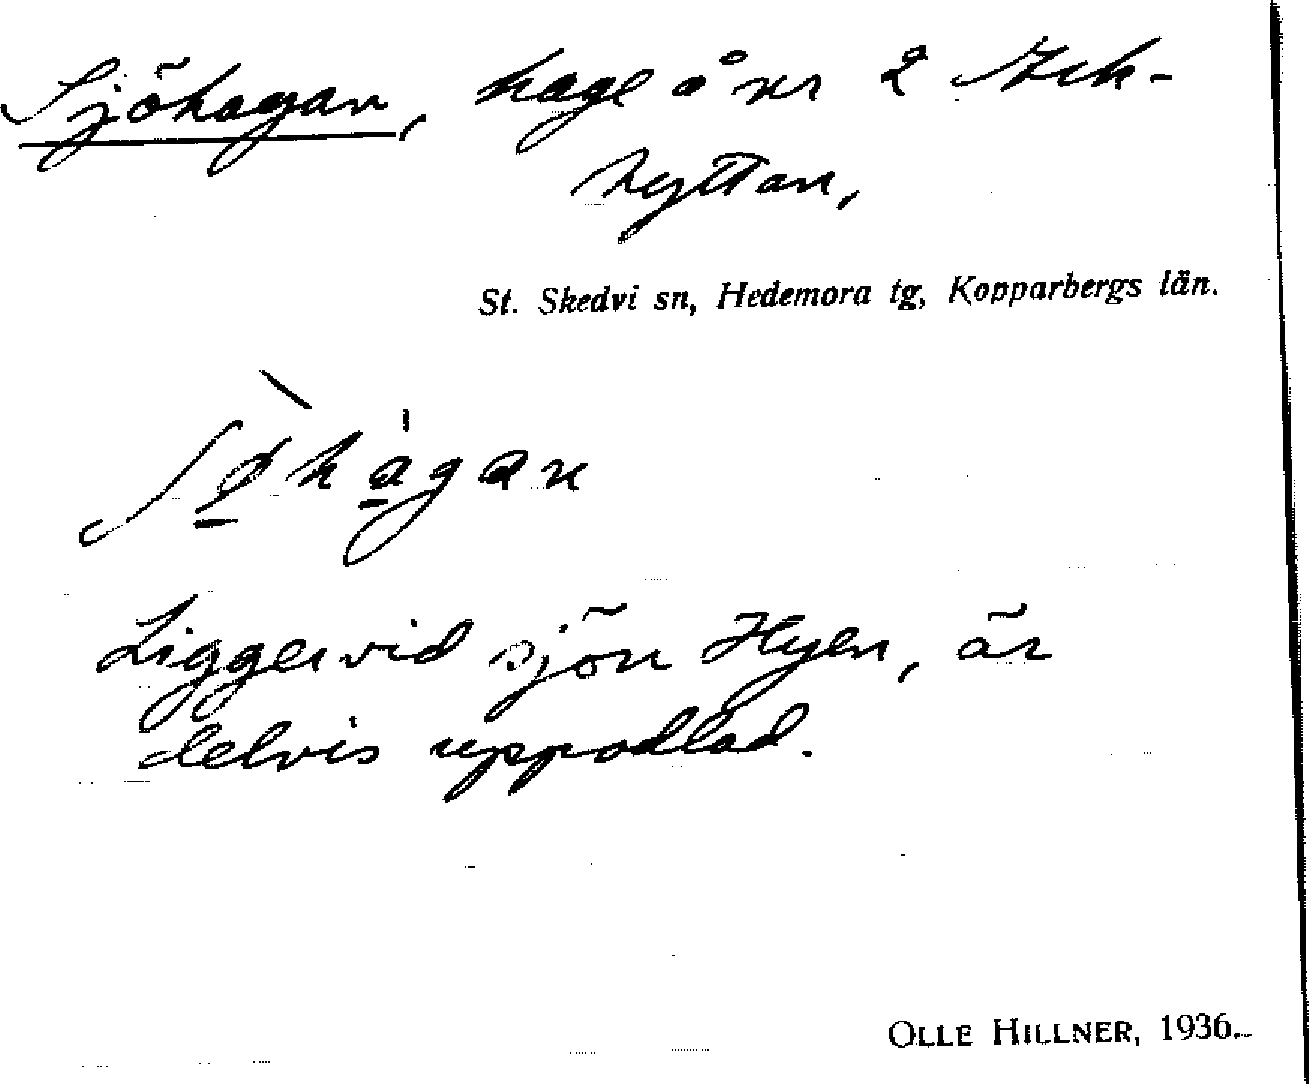 Sjöhagan, hage å nr 2
hyttan,
St. Skedvi sn, Hedemora tg, Kopparbergs län.
Liggervid sjön Hyen, är
delvis uppodlad.
OLLE HILLNER, 1936.